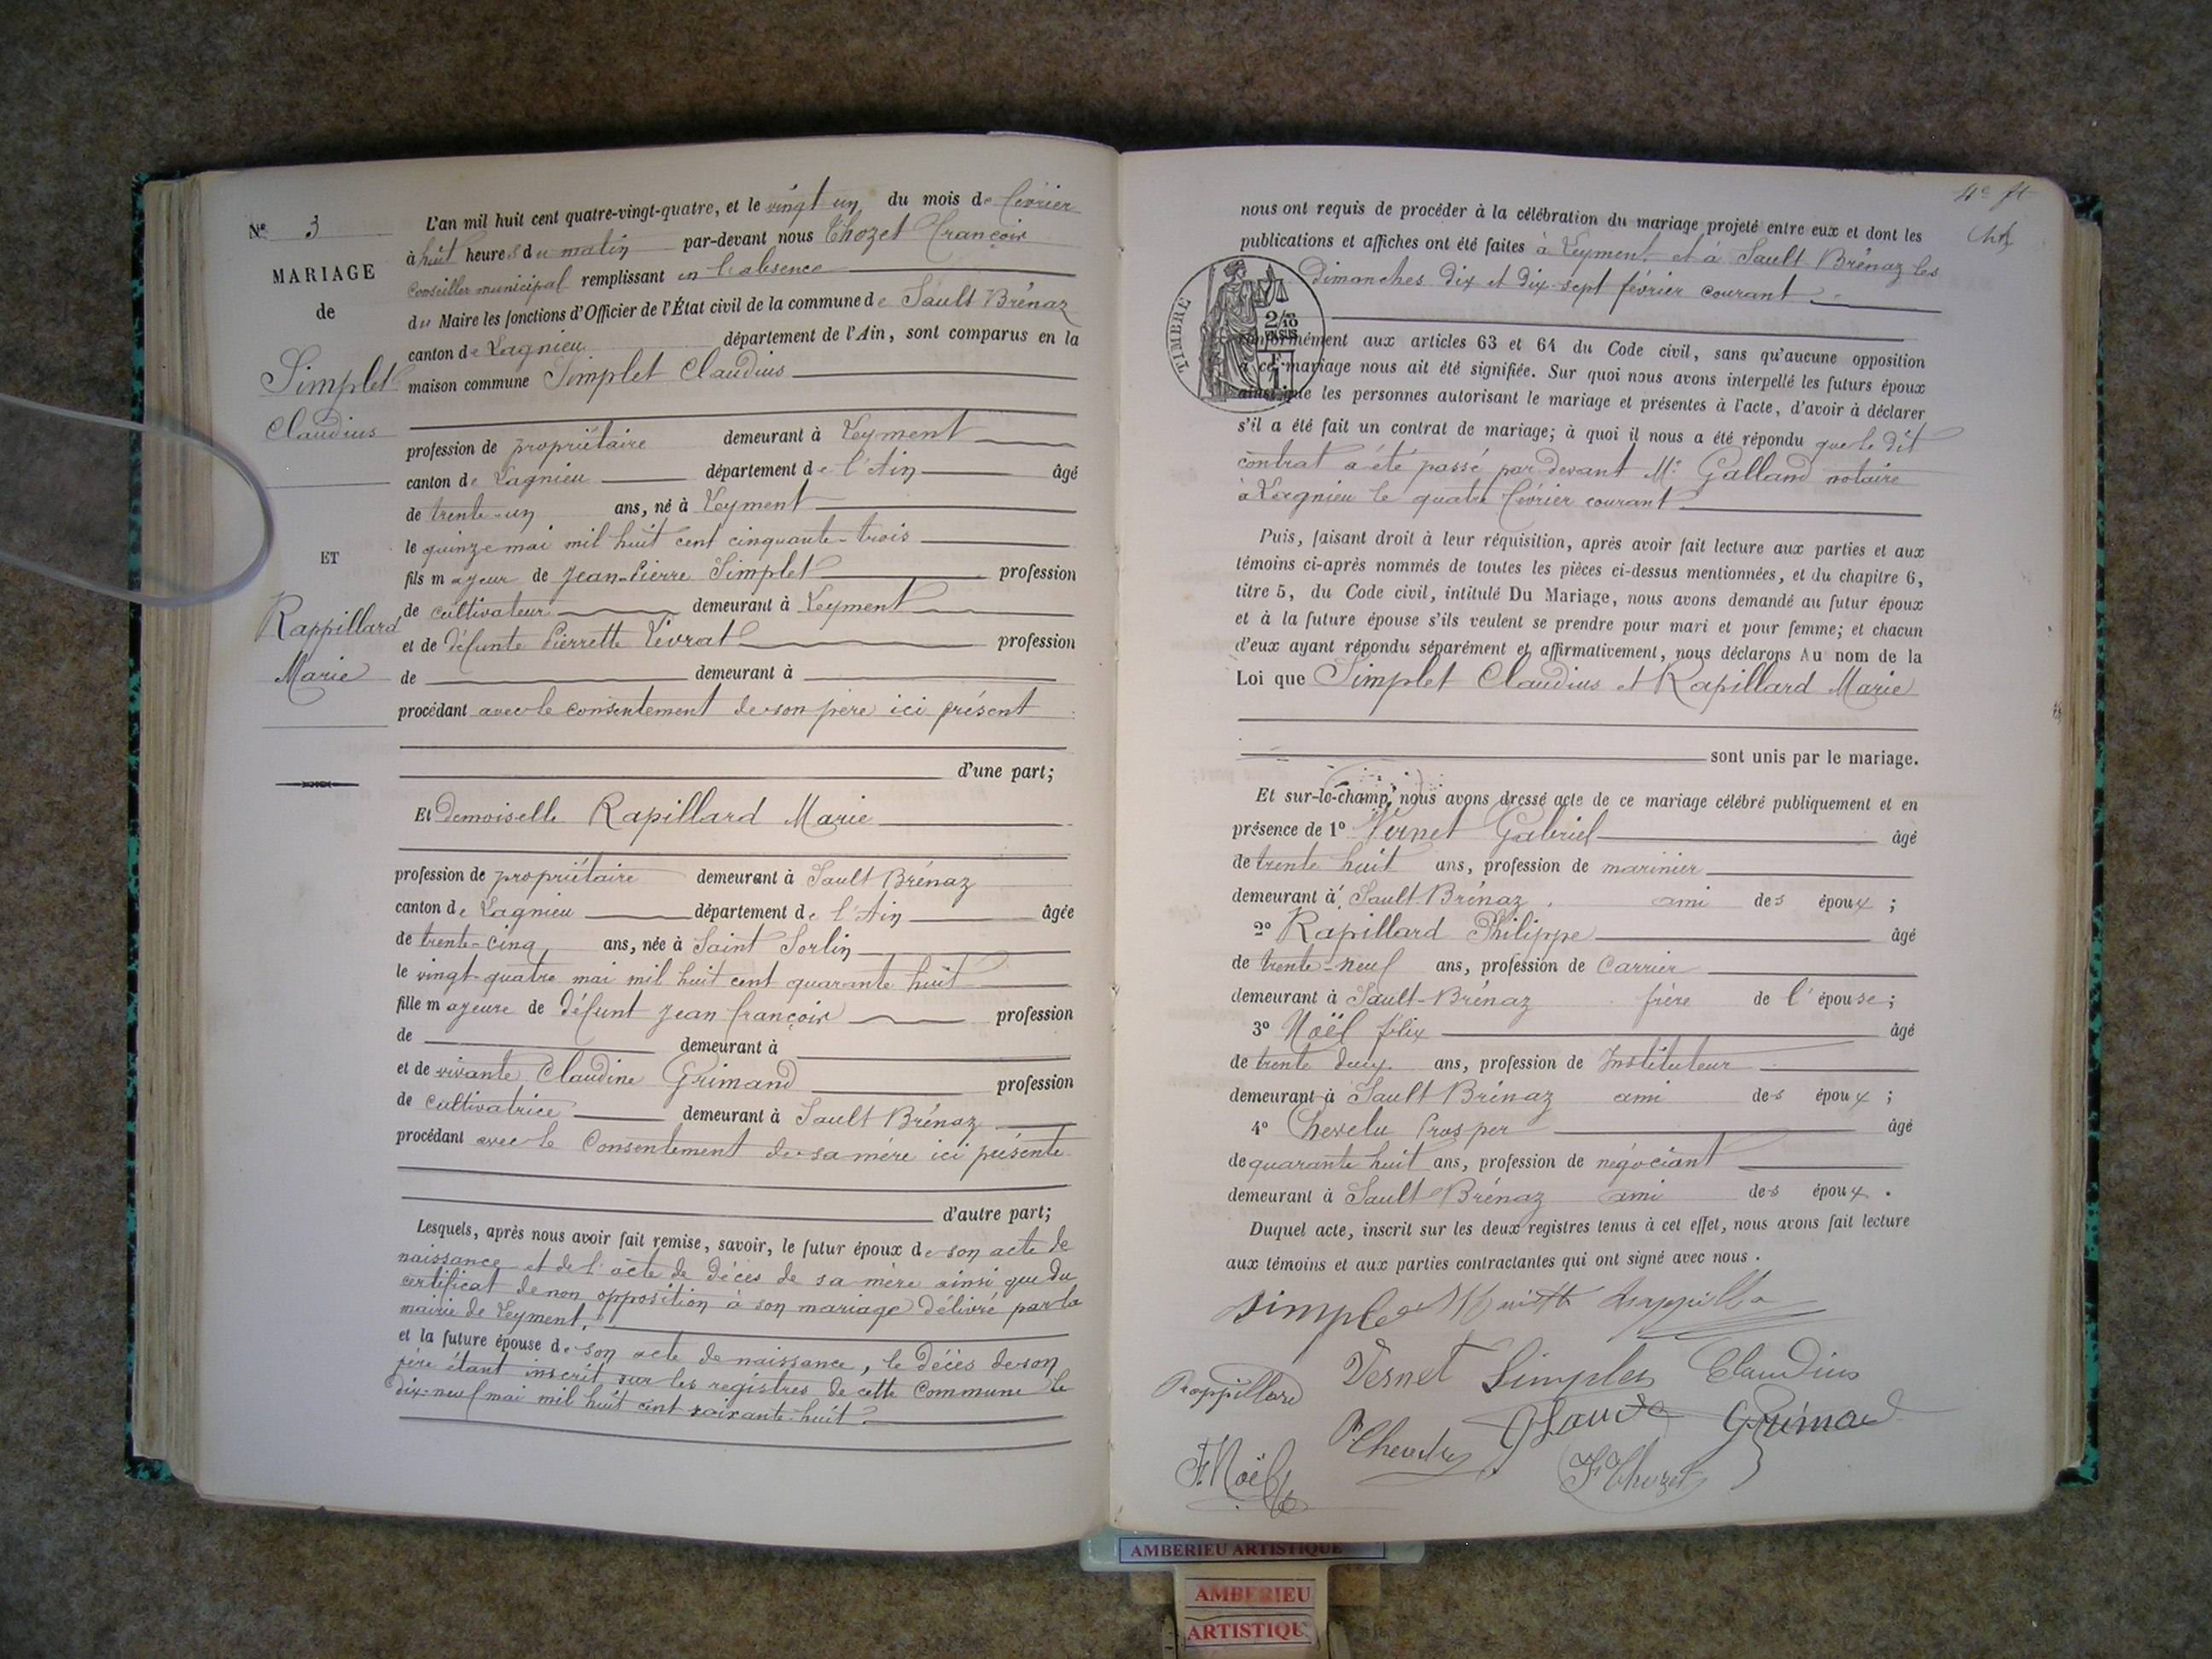 N° 3
MARIAGE
de
Simplet
Claudius
ET
Rappillard
Marie
L'an mil huit cent quatre-vingt-quatre, et le vingt un du mois de février
à huit heures du matin par-devant nous Thozet François
Conseiller municipal remplissant en l'absence
du Maire les fonctions d'Officier de l'État civil de la commune de Sault Brénaz
canton de Lagnieu département de l'Ain, sont comparus en la
maison commune Simplet Claudius
profession de propriétaire demeurant à Leyment
canton de Lagnieu département de l'Ain âgé
de trente-un ans, né à Leyment
le quinze mai mil huit cent cinquante-trois
fils majeur de Jean-Pierre Simplet profession
de cultivateur demeurant à Leyment
et de défunte Pierrette Livrat profession
de demeurant à
procédant avec le consentement de son père ici présent
d'une part;
Et Demoiselle Rapillard Marie
profession de propriétaire demeurant à Sault Brénaz
canton de Lagnieu département de l'Ain âgée
de trente-cinq ans, née à Saint Sorlin
le vingt-quatre mai mil huit cent quarante huit
fille majeure de défunt Jean François profession
de demeurant à
et de vivante Claudine Grimand profession
de Cultivatrice demeurant à Sault Brénaz
procédant avec le Consentement de sa mère ici présente
d'autre part;
Lesquels, après nous avoir fait remise, savoir, le futur époux de son acte de
naissance et de l'acte de décès de sa mère ainsi que du
certificat de non opposition à son mariage délivré par la
mairie de Leyment.
et la future épouse de son acte de naissance, le décès de son
père étant inscrit sur les registres de cette Commune le
dix-neuf mai mil huit cent soixante-huit
4e ft
nous ont requis de procéder à la célébration du mariage projeté entre eux et dont les
publications et affiches ont été faites à Leyment et à Sault Brénaz les
Dimanches dix et dix-sept février courant
TIMBRE
2/10
EN SUS
1 F.
conformément aux articles 63 et 64 du Code civil, sans qu'aucune opposition
à ce mariage nous ait été signifiée. Sur quoi nous avons interpellé les futurs époux
ainsi que les personnes autorisant le mariage et présentes à l'acte, d'avoir à déclarer
s'il a été fait un contrat de mariage; à quoi il nous a été répondu que le dit
contrat a été passé par devant Me Galland notaire
à Lagnieu le quatre février courant
Puis, faisant droit à leur réquisition, après avoir fait lecture aux parties et aux
témoins ci-après nommés de toutes les pièces ci-dessus mentionnées, et du chapitre 6,
titre 5, du Code civil, intitulé Du Mariage, nous avons demandé au futur époux
et à la future épouse s'ils veulent se prendre pour mari et pour femme; et chacun
d'eux ayant répondu séparément et affirmativement, nous déclarons Au nom de la
Loi que Simplet Claudius et Rapillard Marie
sont unis par le mariage.
Et sur-le-champ, nous avons dressé acte de ce mariage célébré publiquement et en
présence de 1° Vernet Gabriel âgé
de trente huit ans, profession de marinier
demeurant à Sault-Brénaz ami des époux ;
2° Rapillard Philippe âgé
de trente-neuf ans, profession de Carrier
demeurant à Sault-Brénaz frère de l'épouse;
3° Noël félix âgé
de trente deux ans, profession de Instituteur
demeurant à Sault Brénaz ami des époux ;
4° Chevelu Prosper âgé
de quarante huit ans, profession de négociant
demeurant à Sault-Brénaz ami des époux .
Duquel acte, inscrit sur les deux registres tenus à cet effet, nous avons fait lecture
aux témoins et aux parties contractantes qui ont signé avec nous .
Rappillard Vernet Simplet Claudius
Grimand
F. Noël F Thozet
AMBERIEU ARTISTIQUE
AMBERIEU
ARTISTIQU